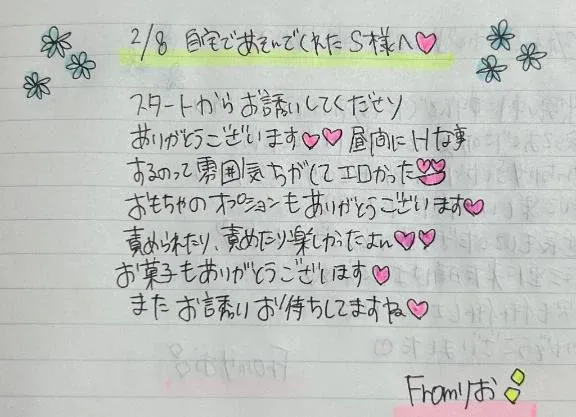 2/8 自宅であそんでくれたS様へ♡
スタートからお誘いしてくださり
ありがとうございます♡♡ 昼間にHな事
するのって雰囲気ちがくてエロかった♡
おもちゃのオプションもありがとうございます♡
責められたり、責めたり楽しかったよん♡♡
お菓子もありがとうございます♡
またお誘いお待ちしてますね♡
Fromりお